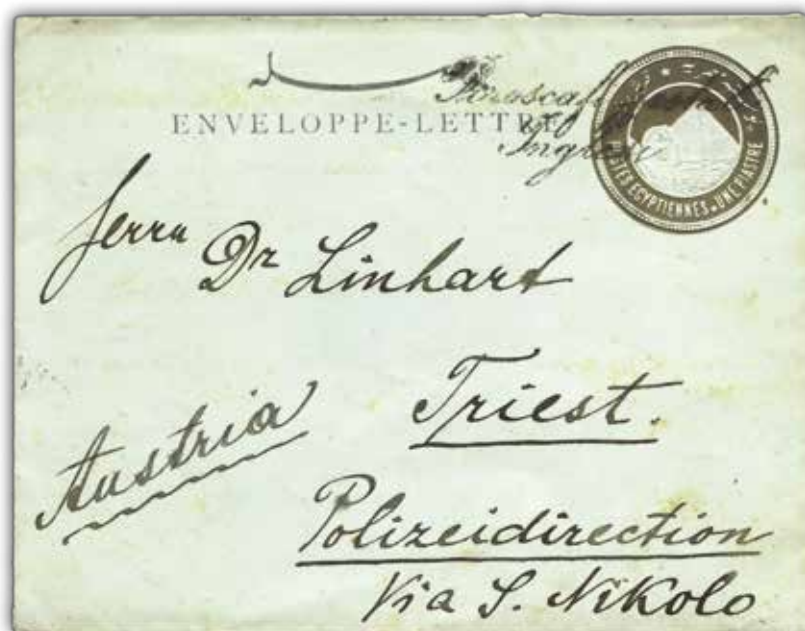 ENVELOPPE-LETTRE
POSTES EGYPTIENNES. UNE PIASTRE
Herrn
Dr Linhart
Triest.
Austria
Polizeidirection
Via S. Nikolo